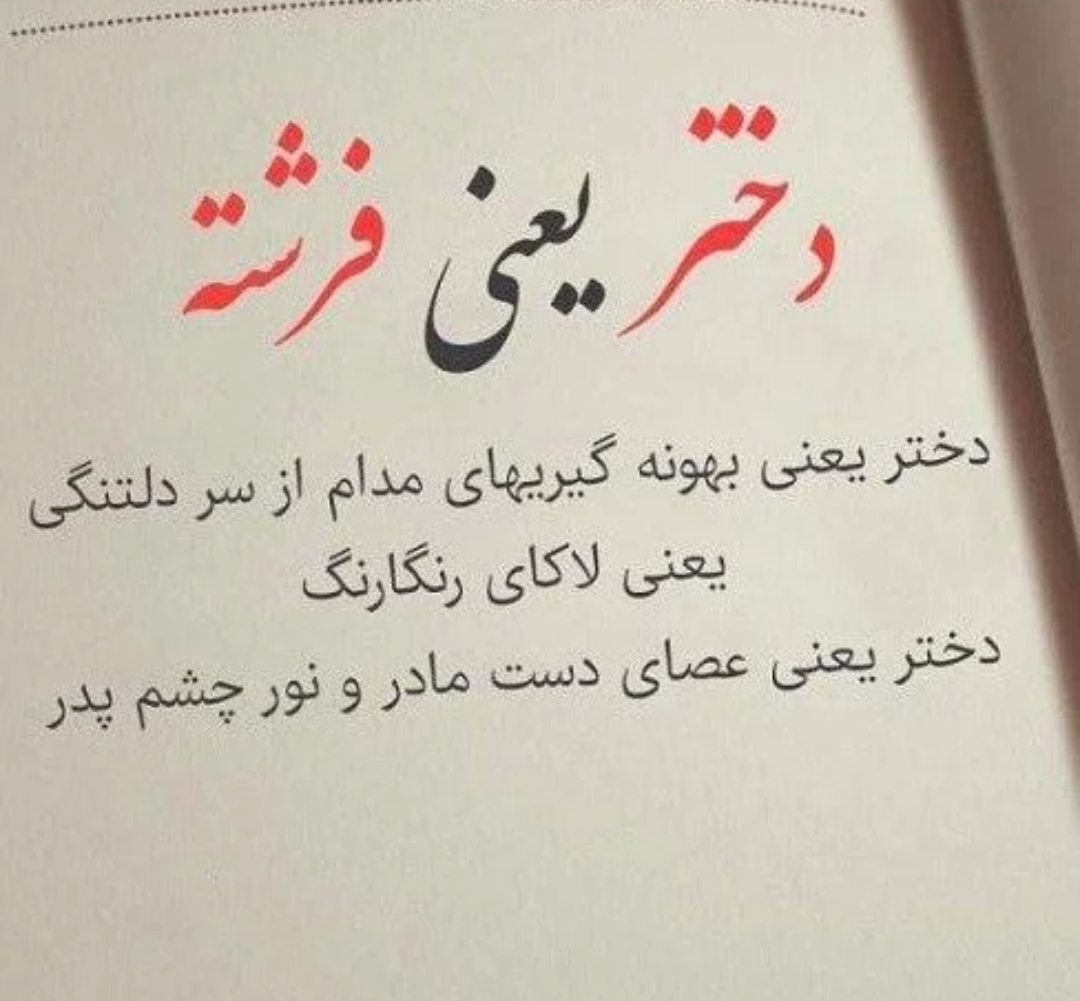 دختر یعنی فرشته
دختر یعنی بهونه گیریهای مدام از سر دلتنگی
یعنی لاکای رنگارنگ
دختر یعنی عصای دست مادر و نور چشم پدر